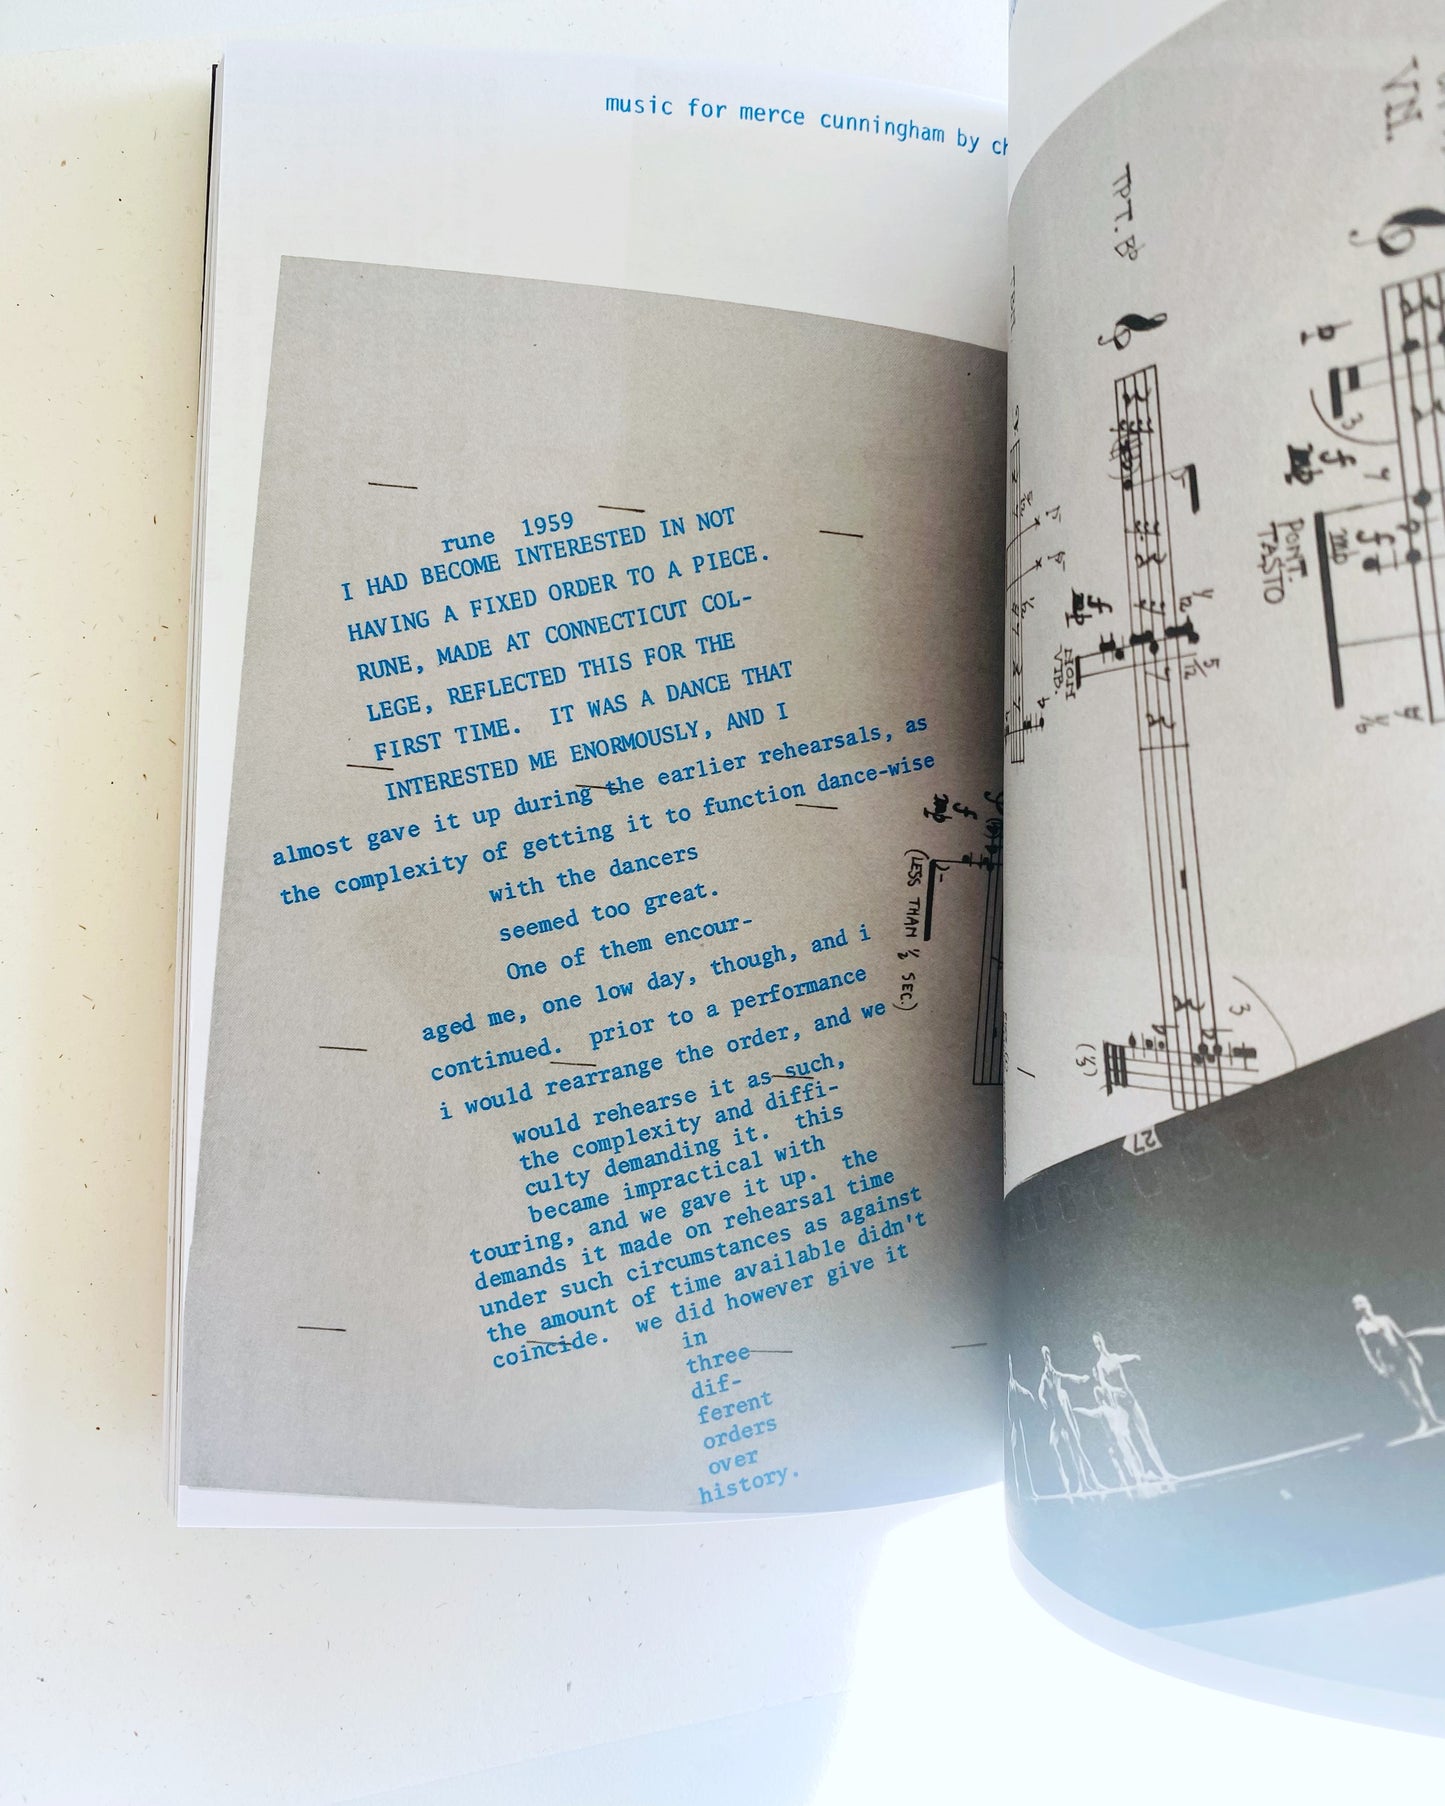 music for merce cunningham by
rune 1959
I HAD BECOME INTERESTED IN NOT
HAVING A FIXED ORDER TO A PIECE.
RUNE, MADE AT CONNECTICUT COL-
LEGE, REFLECTED THIS FOR THE
FIRST TIME. IT WAS A DANCE THAT
INTERESTED ME ENORMOUSLY, AND I
almost gave it up during the earlier rehearsals, as
the complexity of getting it to function dance-wise
with the dancers
seemed too great.
One of them encour-
aged me, one low day, though, and i
continued. prior to a performance
i would rearrange the order, and we
would rehearse it as such,
the complexity and diffi-
culty demanding it. this
became impractical with
touring, and we gave it up. the
demands it made on rehearsal time
under such circumstances as against
the amount of time available didn't
coincide. we did however give it
in
three
dif-
ferent
orders
over
history.
mp f
(LESS THAN 1/2 SEC.)
VN.
TPT.
3
mp f
PONT.
TASTO
mp
1/6
mp f
NON
VIB.
1/2
5/12
3
(1/3)
27